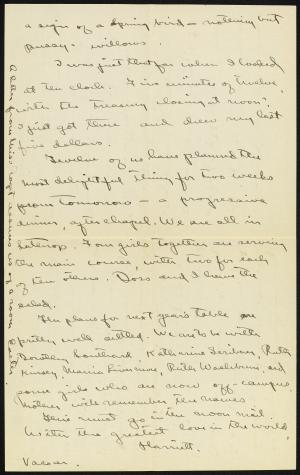 a sign of a spring bird - nothing but
pussy-willows.
I was just that far when I looked
at ten clock. Five minutes of twelve,
with the Treasury closing at noon!
I just got there and drew my last
five dollars.
Twelve of us have planned the
most delightful thing for two weeks
from tomorrow - a progressive
dinner, after chapel. We are all in
Lathrop. Four girls together are serving
the main course, with two for each
of ten others. Doss and I have the
salad.
The plans for next year's table are
pretty well settled. We are to be with
Dorothy Southard, Katherine Scribner, Ruth
Kinsey, Marie Rinemore, Ruth Washburn, and
some girls who are now off campus.
Mother will remember the names.
This must go in the noon mail.
With the greatest love in the world,
Harriett.
Vassar.
A letter from Miss assures us of a room